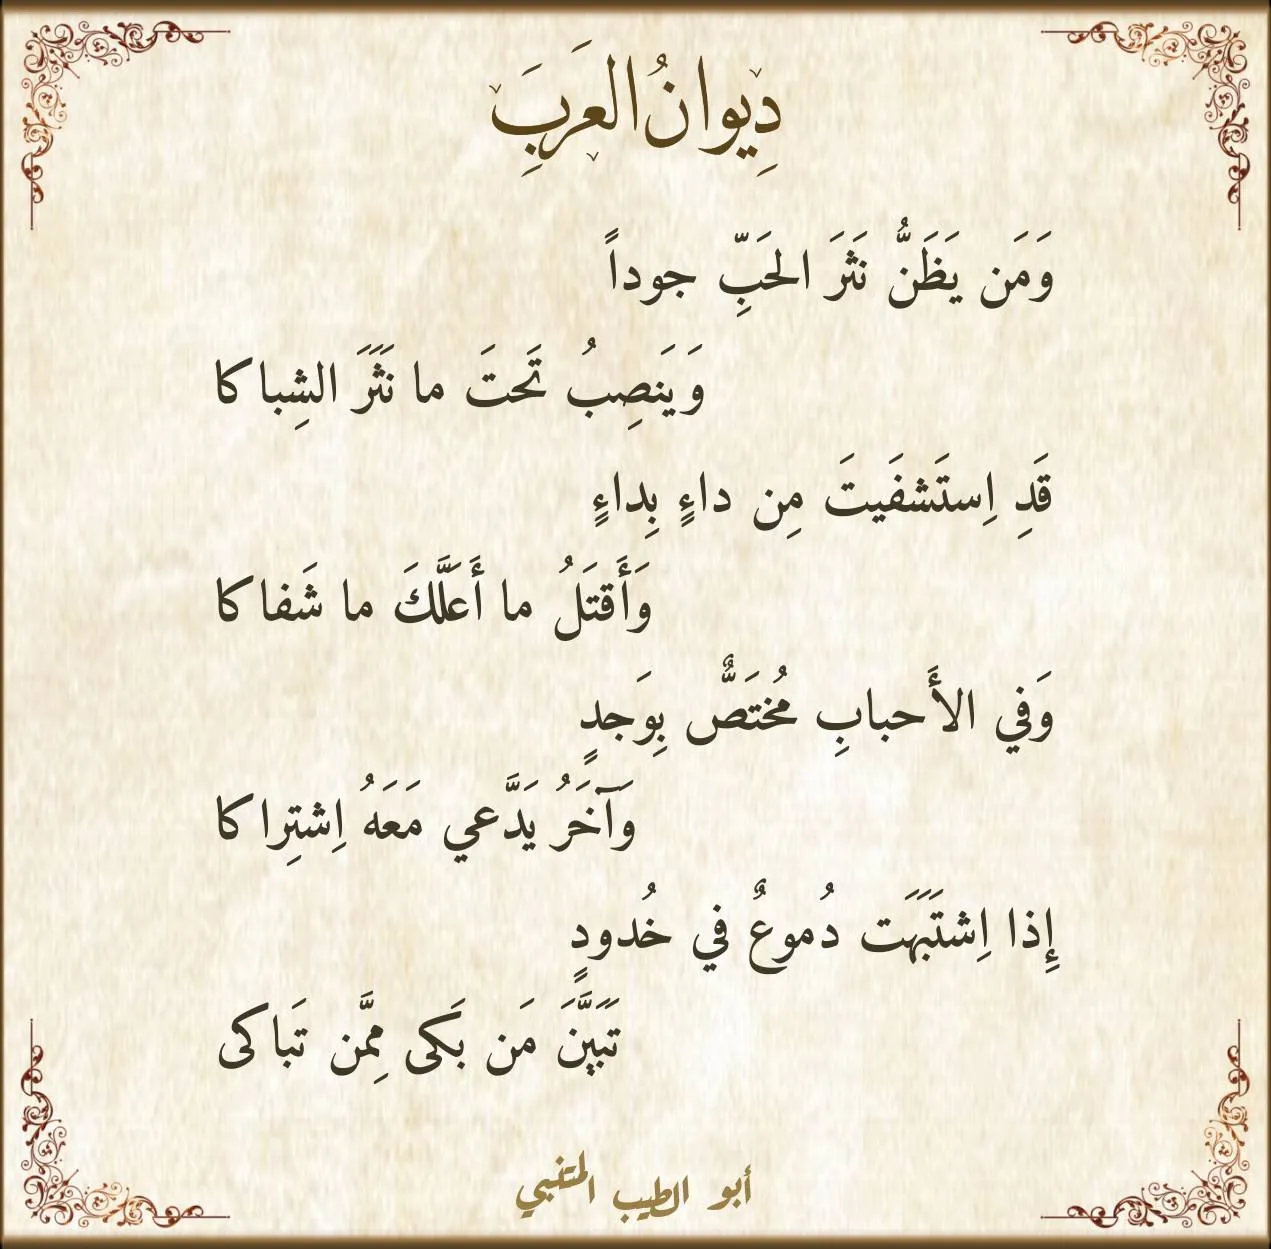 دِيوانُ العَربِ
وَمَن يَظَنُّ نَثرَ الحَبِّ جوداً
وَيَنصِبُ تَحتَ ما نَثَرَ الشِباكا
قَدِ اِستَشفَيتَ مِن داءٍ بِداءٍ
وَأَقتَلُ ما أَعَلَّكَ ما شَفاكا
وَفي الأَحبابِ مُختَصٌّ بِوَجدٍ
وَآخَرُ يَدَّعي مَعَهُ اِشتِراكا
إِذا اِشتَبَهَت دُموعٌ في خُدودٍ
تَبَيَّنَ مَن بَكى مِمَّن تَباكى
أبو الطيب المتنبي